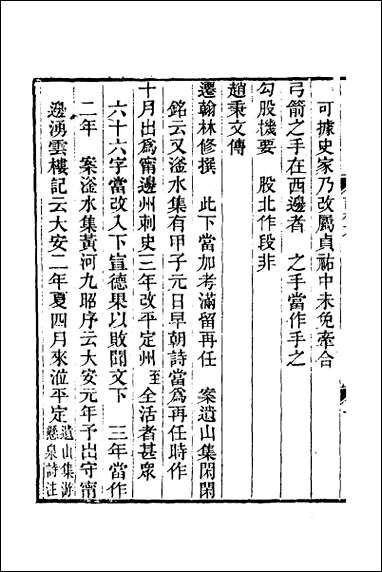 可據史家乃改屬貞祐中未免牽合
弓箭之手在西邊者　之手當作手之
勾股機要　股北作段非
趙秉文傳
遷翰林修撰　此下當加考滿留再任　案遺山集閑閑
銘云又滏水集有甲子元日早朝詩當爲再任時作
十月出爲甯邊州刺史三年改平定州至全活者甚衆
六十六字當改入下宣德果以敗聞文下　三年當作
二年　案滏水集黃河九昭序云大安元年予出守甯
邊湧雲樓記云大安二年夏四月來涖平定遺山集游
懸泉詩注